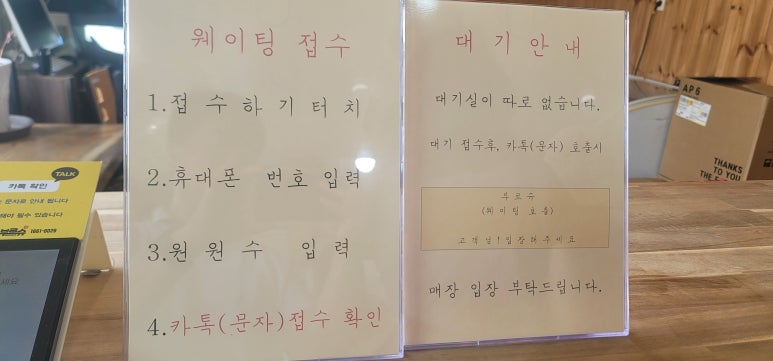 웨이팅 접수
1.접 수 하 기 터 치
2.휴대폰 번호 입력
3.원 원 수 입 력
4.카톡(문자)접수 확인
대 기 안 내
대기실이 따로 없습니다.
대기 접수후, 카톡(문자) 호출시
부르슈
(웨이팅 호출)
고객님!입장해주세요
매장 입장 부탁드립니다.
TALK
카톡 확인
문자로 안내 됩니다
해야 될수 있습니다
부르슈 1661-8029
세요
AP6
THANKS
TO YOU
THE